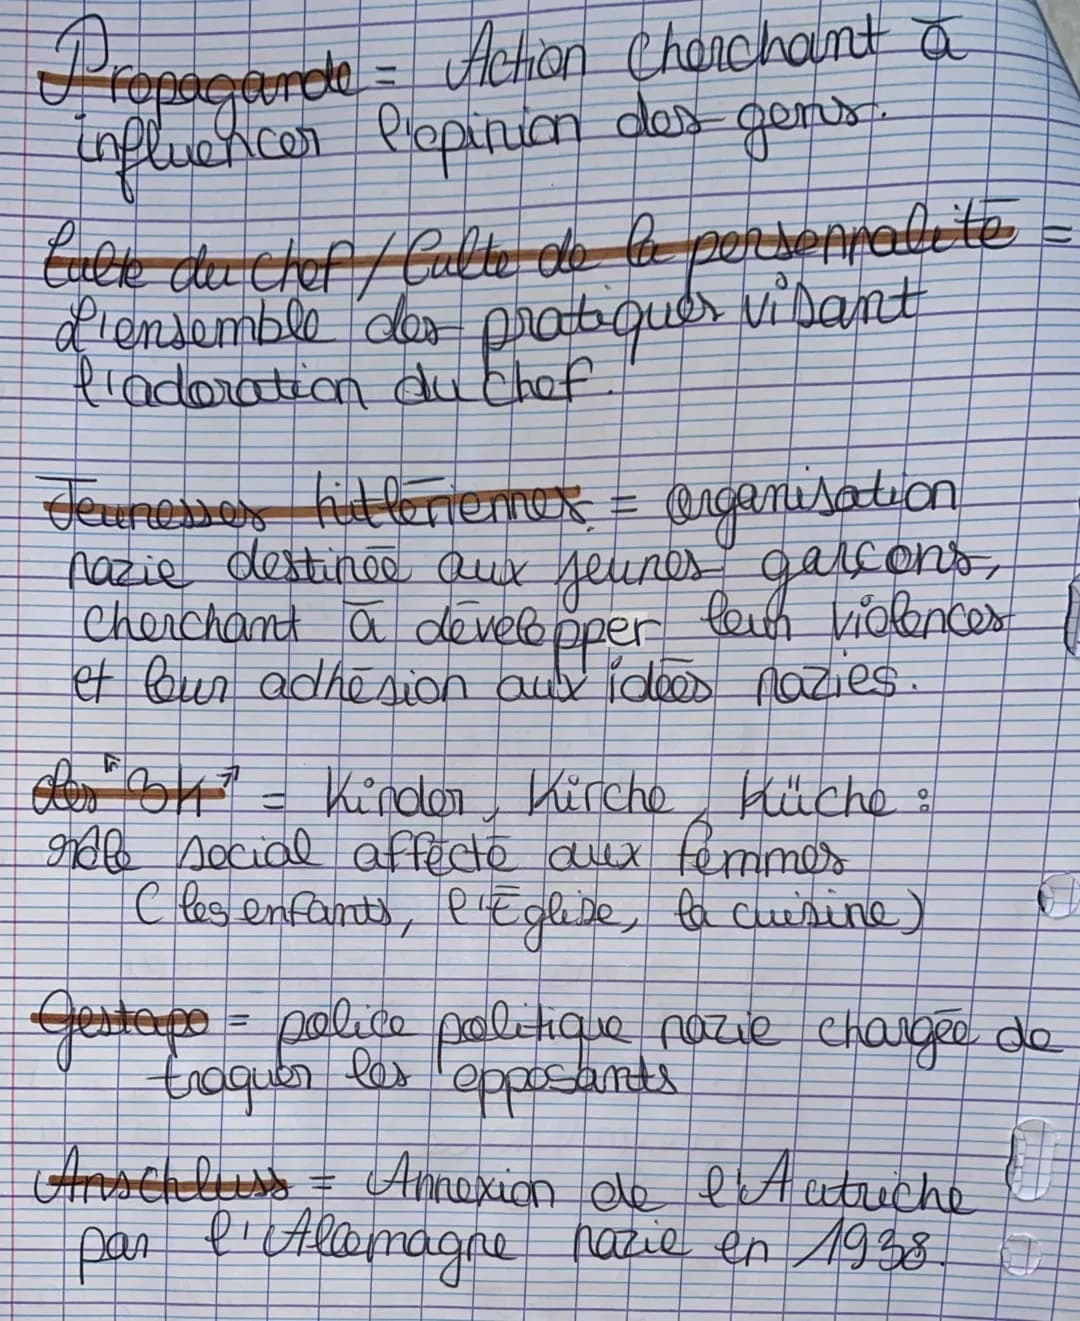 Propagande = Action cherchant à
influencer l'opinion des gens.
Culte du chef / Culte de la personnalité =
L'ensemble des pratiques visant
l'adoration du chef.
Jeunesses hitlériennes = Organisation
nazie destinée aux jeunes garçons,
cherchant à développer leur violences
et leur adhésion aux idées nazies.
des "3K" = Kinder, Kirche, Küche :
rôle social affecté aux femmes
(les enfants, l'Église, la cuisine)
Gestapo = police politique nazie chargée de
traquer les opposants
Anschluss = Annexion de l'Autriche
par l'Allemagne nazie en 1938.